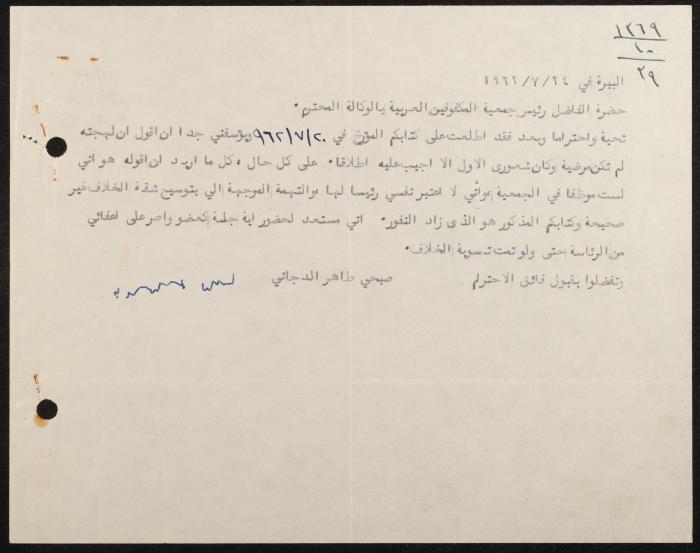 ١٣٦٩
١٠
٢٩
البيرة في ٢٤/ ٧/ ١٩٦٢
حضرة الفاضل رئيس جمعية المكفوفين العربية بالوكالة المحترم.
تحية واحتراما وبعد فقد اطلعت على كتابكم المؤرخ في ٩٦٢/٧/٢٠ ويؤسفني جدا ان اقول ان لهجته
لم تكن مرضية وكان شعورى الاول الا اجيب عليه اطلاقا. على كل حال، كل ما اريد ان اقوله هو اني
لست موظفا في الجمعية واني لا اعتبر نفسي رئيسا لها والتهمة الموجهة الي بتوسيع شقة الخلاف غير
صحيحة وكتابكم المذكور هو الذى زاد النفور. اني مستعد لحضور اية جلسة كعضو واصر على اعفائي
من الرئاسة حتى ولو تمت تسوية الخلاف.
وتفضلوا بقبول فائق الاحترام صبحي طاهر الدجاني